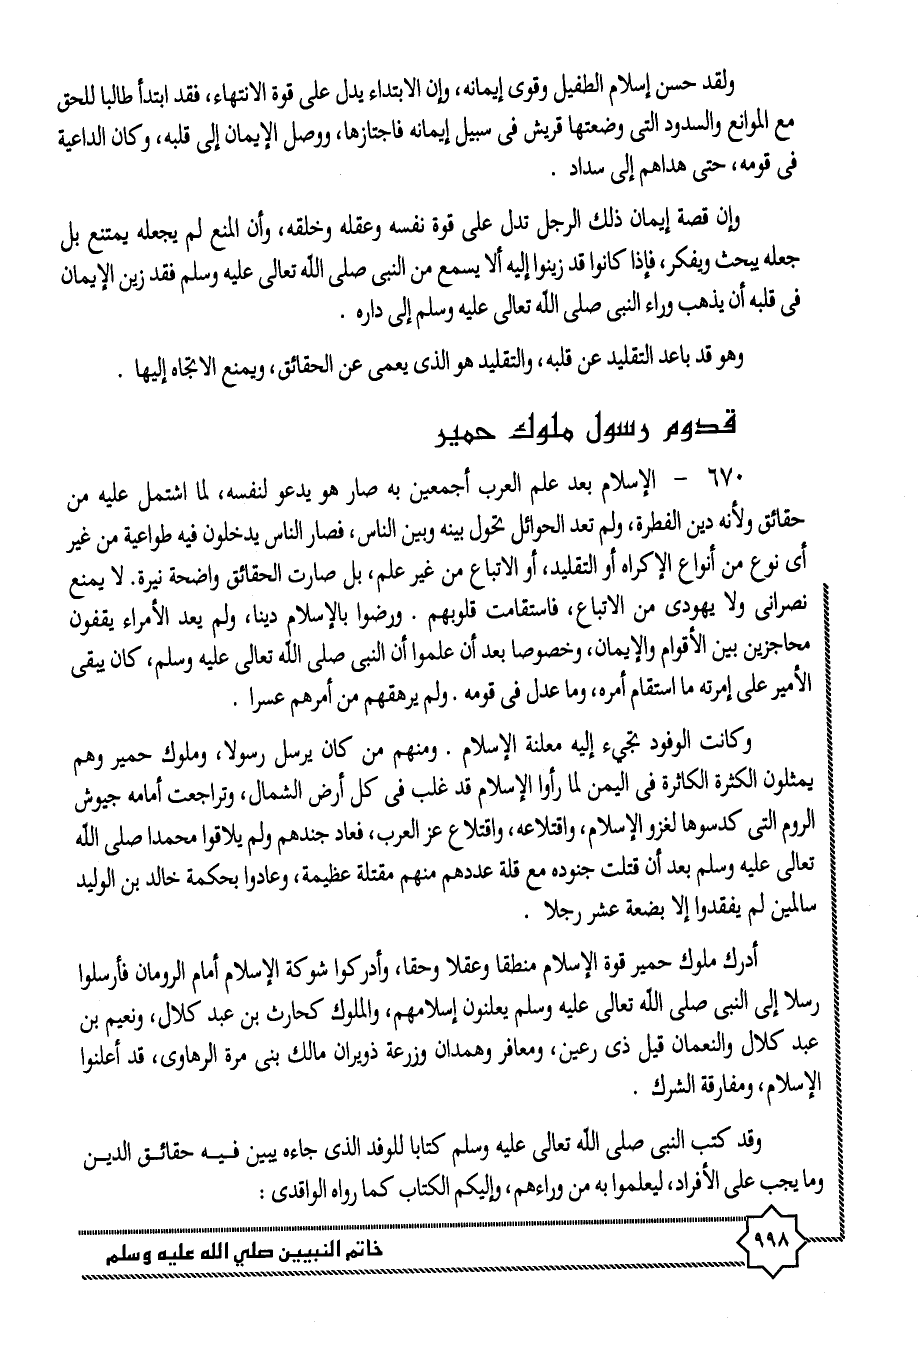 ولقد حسن إسلام الطفيل وقوى إيمانه، وإن الابتداء يدل على قوة الانتهاء، فقد ابتدأ طالبا للحق
مع الموانع والسدود التى وضعتها قريش فى سبيل إيمانه فاجتازها، ووصل الإيمان إلى قلبه، وكان الداعية
فى قومه، حتى هداهم إلى سداد .
وإن قصة إيمان ذلك الرجل تدل على قوة نفسه وعقله وخلقه، وأن المنع لم يجعله يمتنع بل
جعله يبحث ويفكر، فإذا كانوا قد زينوا إليه ألا يسمع من النبى صلى الله تعالى عليه وسلم فقد زين الإيمان
فى قلبه أن يذهب وراء النبى صلى الله تعالى عليه وسلم إلى داره .
وهو قد باعد التقليد عن قلبه، والتقليد هو الذى يعمى عن الحقائق، ويمنع الاتجاه إليها .
قدوم رسول ملوك حمير
٦٧٠ - الإسلام بعد علم العرب أجمعين به صار هو يدعو لنفسه، لما اشتمل عليه من
حقائق ولأنه دين الفطرة، ولم تعد الحوائل تحول بينه وبين الناس، فصار الناس يدخلون فيه طواعية من غير
أى نوع من أنواع الإكراه أو التقليد، أو الاتباع من غير علم، بل صارت الحقائق واضحة نيرة. لا يمنع
نصرانى ولا يهودى من الاتباع، فاستقامت قلوبهم . ورضوا بالإسلام دينا، ولم يعد الأمراء يقفون
محاجزين بين الأقوام والإيمان، وخصوصا بعد أن علموا أن النبى صلى الله تعالى عليه وسلم، كان يبقى
الأمير على إمرته ما استقام أمره، وما عدل فى قومه . ولم يرهقهم من أمرهم عسرا .
وكانت الوفود تجيء إليه معلنة الإسلام . ومنهم من كان يرسل رسولا، وملوك حمير وهم
يمثلون الكثرة الكاثرة فى اليمن لما رأوا الإسلام قد غلب فى كل أرض الشمال، وتراجعت أمامه جيوش
الروم التى كدسوها لغزو الإسلام، واقتلاعه، واقتلاع عز العرب، فعاد جندهم ولم يلاقوا محمدا صلى الله
تعالى عليه وسلم بعد أن قتلت جنوده مع قلة عددهم منهم مقتلة عظيمة، وعادوا بحكمة خالد بن الوليد
سالمين لم يفقدوا إلا بضعة عشر رجلا .
أدرك ملوك حمير قوة الإسلام منطقا وعقلا وحقا، وأدركوا شوكة الإسلام أمام الرومان فأرسلوا
رسلا إلى النبى صلى الله تعالى عليه وسلم يعلنون إسلامهم، والملوك كحارث بن عبد كلال، ونعيم بن
عبد كلال والنعمان قيل ذى رعين، ومعافر وهمدان وزرعة ذويران مالك بنى مرة الرهاوى، قد أعلنوا
الإسلام، ومفارقة الشرك .
وقد كتب النبى صلى الله تعالى عليه وسلم كتابا للوفد الذى جاءه يبين فيه حقائق الدين
وما يجب على الأفراد، ليعلموا به من وراءهم، وإليكم الكتاب كما رواه الواقدى :
٩٩٨
خاتم النبيين صلي الله عليه وسلم